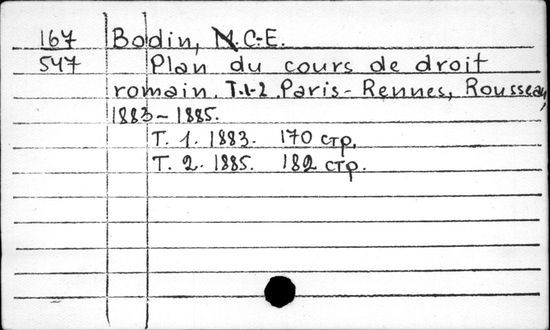 167 Bodin, C.-E.
547 Plan du cours de droit
romain. T.1-2. Paris-Rennes, Rousseau,
1883-1885.
T. 1. 1883. 170 стр.
T. 2. 1885. 182 стр.